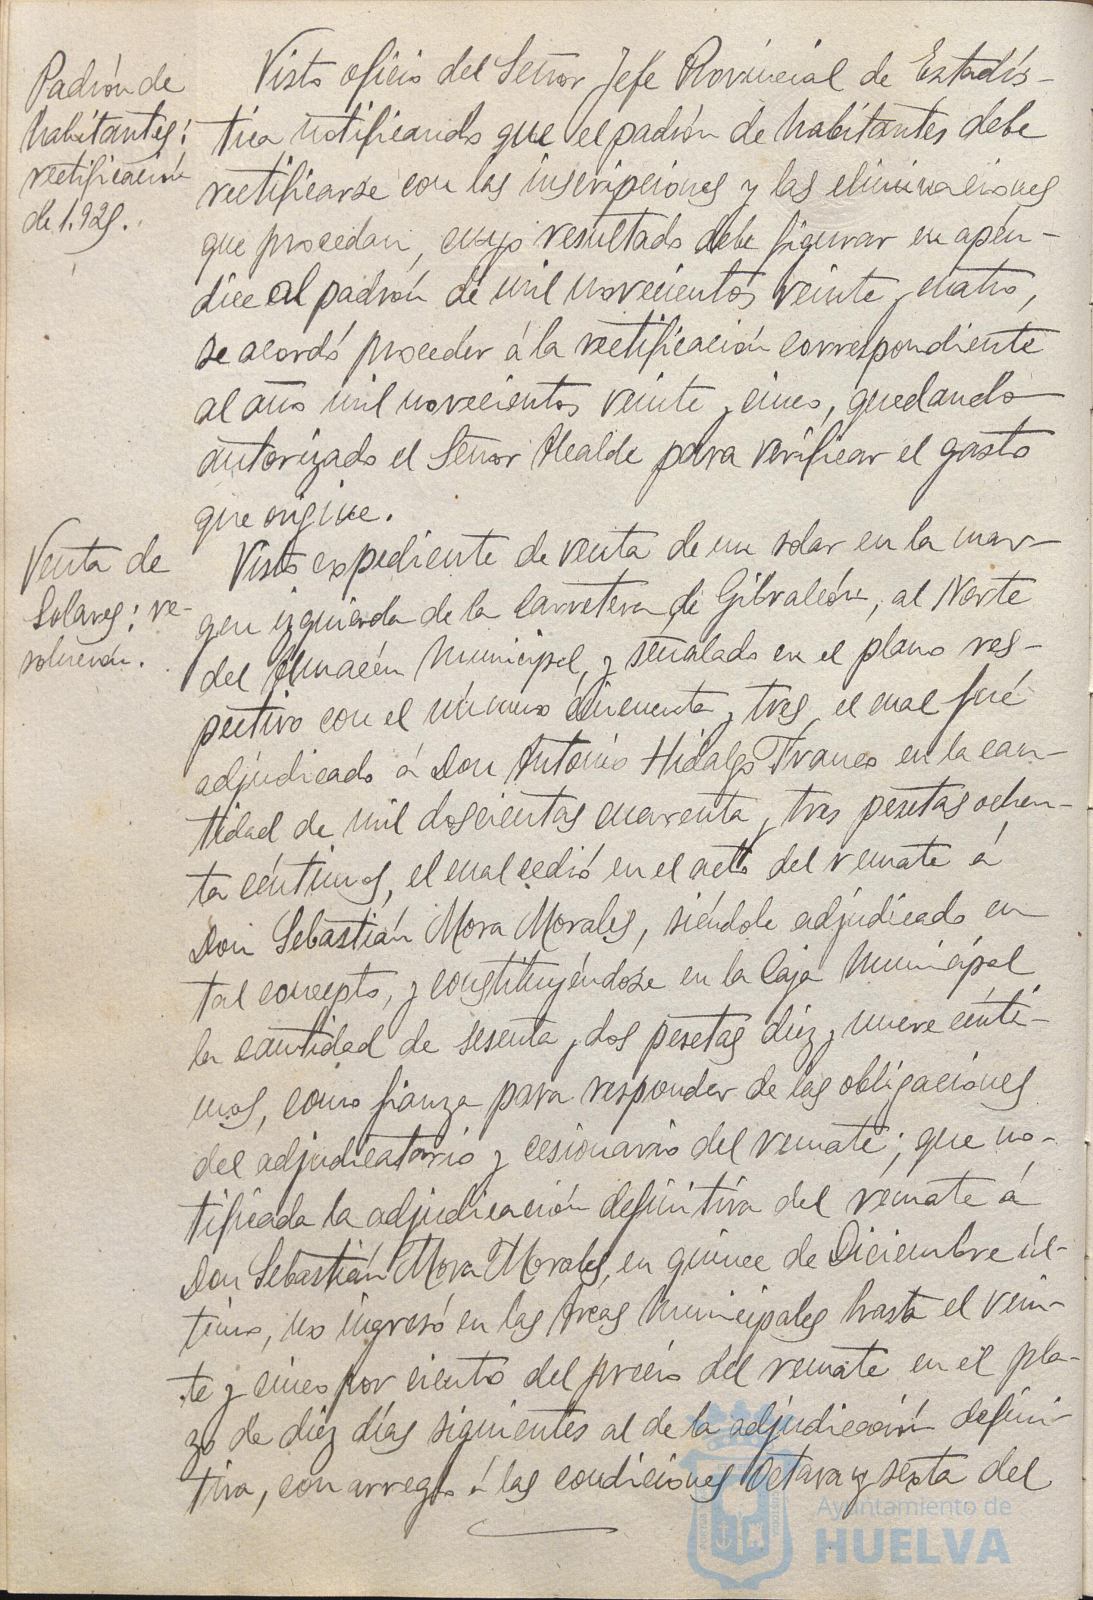 Padrón de
habitantes;
rectificación
de 1.925.
Visto oficio del Señor Jefe Provincial de Estadís-
tica notificando que el padrón de habitantes debe
rectificarse con las inscripciones y las eliminaciones
que procedan, cuyo resultado debe figurar en apén-
dice al padrón de mil novecientos veinte y cuatro,
se acordó proceder á la rectificación correspondiente
al año mil novecientos veinte y cinco, quedando
autorizado el Señor Alcalde para verificar el gasto
que origine.
Venta de
Solares; re-
solución.
Visto expediente de venta de un solar en la mar-
gen izquierda de la Carretera de Gibraleón, al Norte
del Almacén Municipal, y señalado en el plano res-
pectivo con el número cincuenta y tres, el cual fué
adjudicado á Don Antonio Hidalgo Franco en la can-
tidad de mil doscientas cuarenta y tres pesetas ochen-
ta céntimos, el cual cedió en el acto del remate á
Don Sebastián Mora Morales, siéndole adjudicado en
tal concepto, y constituyéndose en la Caja Municipal
la cantidad de sesenta y dos pesetas diez y nueve cénti-
mos, como fianza para responder de las obligaciones
del adjudicatario y cesionario del remate; que no-
tificada la adjudicación definitiva del remate á
Don Sebastián Mora Morales, en quince de Diciembre úl-
timo, no ingresó en las Arcas Municipales hasta el vein-
te y cinco por ciento del precio del remate en el pla-
zo de diez días siguientes al de la adjudicación defini-
tiva, con arreglo á las condiciones octava y sexta del
Ayuntamiento de
HUELVA